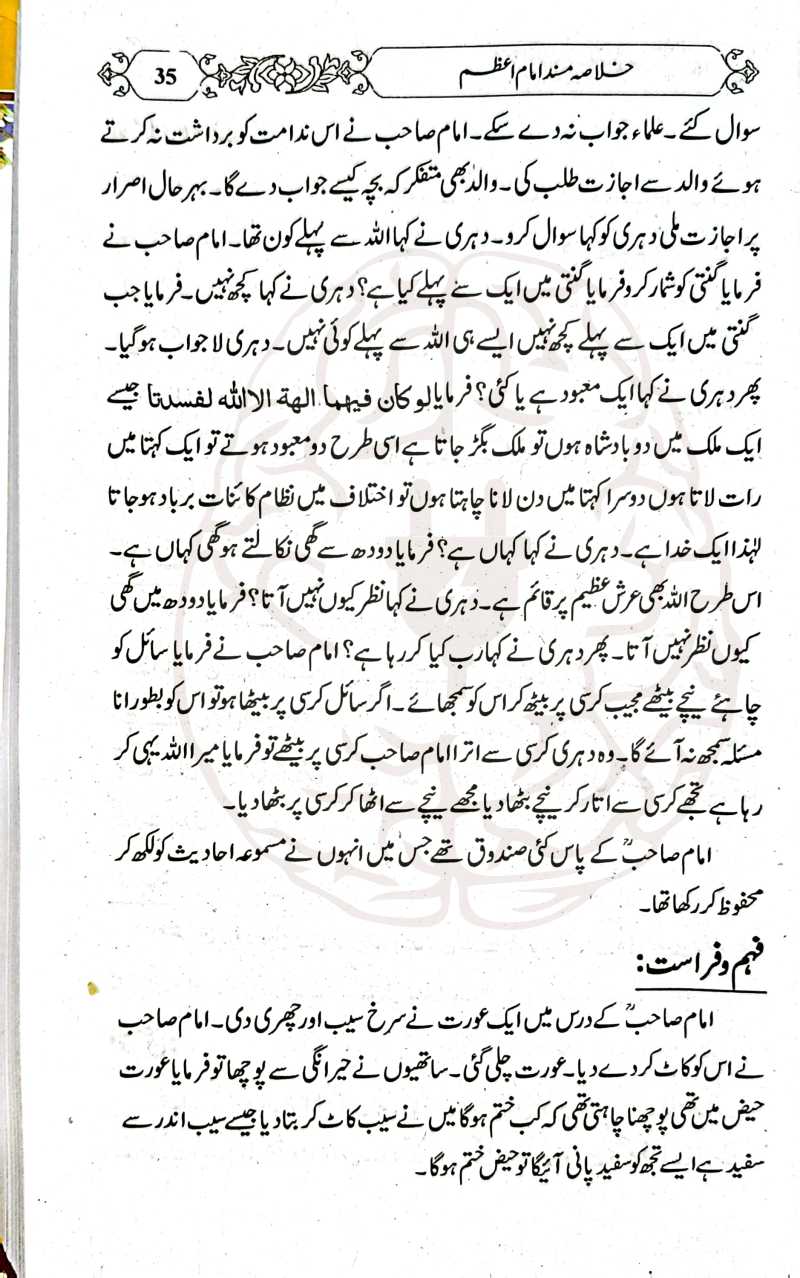 خلاصہ مسند امام اعظم
35
سوال کئے۔ علماء جواب نہ دے سکے۔ امام صاحب نے اس ندامت کو برداشت نہ کرتے
ہوئے والد سے اجازت طلب کی۔ والد بھی متفکر کہ بچہ کیسے جواب دے گا۔ بہر حال اصرار
پر اجازت ملی دہری کو کہا سوال کرو۔ دہری نے کہا اللہ سے پہلے کون تھا۔ امام صاحب نے
فرمایا گنتی کو شمار کرو فرمایا گنتی میں ایک سے پہلے کیا ہے؟ دہری نے کہا کچھ نہیں۔ فرمایا جب
گنتی میں ایک سے پہلے کچھ نہیں ایسے ہی اللہ سے پہلے کوئی نہیں۔ دہری لا جواب ہو گیا۔
پھر دہری نے کہا ایک معبود ہے یا کئی؟ فرمایا لو کان فیهما الهة الا الله لفسدتا جیسے
ایک ملک میں دو بادشاہ ہوں تو ملک بگڑ جاتا ہے اسی طرح دو معبود ہوتے تو ایک کہتا میں
رات لاتا ہوں دوسرا کہتا میں دن لانا چاہتا ہوں تو اختلاف میں نظام کائنات برباد ہو جاتا
لہٰذا ایک خدا ہے۔ دہری نے کہا کہاں ہے؟ فرمایا دودھ سے گھی نکالتے ہو گھی کہاں ہے۔
اس طرح اللہ بھی عرش عظیم پر قائم ہے۔ دہری نے کہا نظر کیوں نہیں آتا؟ فرمایا دودھ میں گھی
کیوں نظر نہیں آتا۔ پھر دہری نے کہا رب کیا کر رہا ہے؟ امام صاحب نے فرمایا سائل کو
چاہئے نیچے بیٹھے مجیب کرسی پر بیٹھ کر اس کو سمجھائے۔ اگر سائل کرسی پر بیٹھا ہو تو اس کو بطور انا
مسئلہ سمجھ نہ آئے گا۔ وہ دہری کرسی سے اترا امام صاحب کرسی پر بیٹھے تو فرمایا میرا اللہ یہی کر
رہا ہے تجھے کرسی سے اتار کر نیچے بٹھا دیا مجھے نیچے سے اٹھا کر کرسی پر بٹھا دیا۔
امام صاحبؒ کے پاس کئی صندوق تھے جس میں انہوں نے مسموعہ احادیث کو لکھ کر
محفوظ کر رکھا تھا۔
فہم و فراست:
امام صاحبؒ کے درس میں ایک عورت نے سرخ سیب اور چھری دی۔ امام صاحب
نے اس کو کاٹ کر دے دیا۔ عورت چلی گئی۔ ساتھیوں نے حیرانگی سے پوچھا تو فرمایا عورت
حیض میں تھی پوچھنا چاہتی تھی کہ کب ختم ہوگا میں نے سیب کاٹ کر بتا دیا جیسے سیب اندر سے
سفید ہے ایسے تجھ کو سفید پانی آئیگا تو حیض ختم ہوگا۔